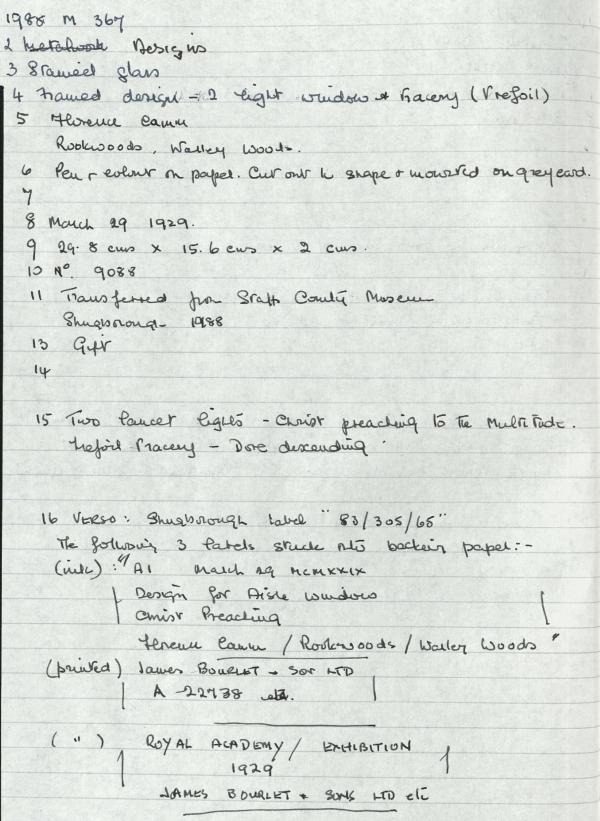 1988 M 367
2 Metalwork Designs
3 Stained glass
4 Framed design - 2 light window + tracery (trefoil)
5 Florence Camm
Rookwoods, Watley Woods.
6 Pen + colour on paper. Cut out to shape + mounted on grey card.
7
8 March 29 1929.
9 29.8 cms x 15.6 cms x 2 cms.
10 No. 9088
11 Transferred from Staffs County Museum
Shugborough 1988
13 Gift
14
15 Two lancet lights - Christ preaching to the Multitude.
Trefoil Tracery - Dove descending
16 VERSO: Shugborough label "83/305/65"
The following 3 labels stuck onto backing paper:-
(ink): "A1 March 29 MCMXXIX
Design for Aisle windows
Christ Preaching
Florence Camm / Rookwoods / Watley Woods"
(printed) James BOURLET + Son LTD
A-22738
(") ROYAL ACADEMY / EXHIBITION
1929
JAMES BOURLET + SONS LTD etc